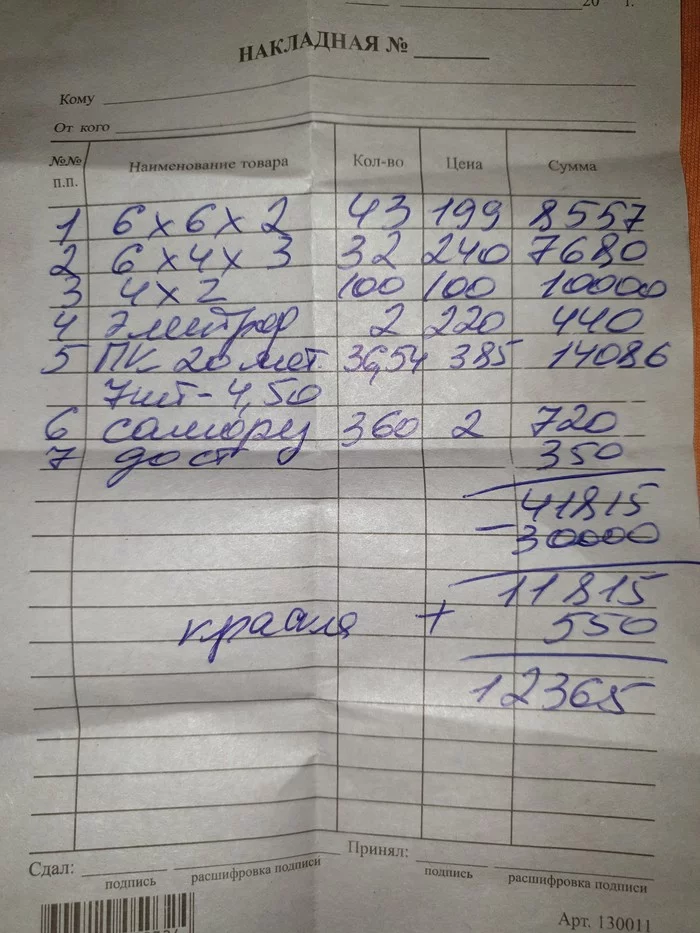 20 г.
НАКЛАДНАЯ №
Кому
От кого
№№ п.п. Наименование товара Кол-во Цена Сумма
1 6 х 6 х 2 43 199 8557
2 6 х 4 х 3 32 240 7680
3 4 х 2 100 100 10000
4 электрод 2 220 440
5 ПК 20 мет. 36,54 385 14086
7шт - 4,50
6 саморез 360 2 720
7 дост 350
41815
- 30000
11815
краска + 550
12365
Сдал: Принял:
подпись расшифровка подписи подпись расшифровка подписи
Арт. 130011